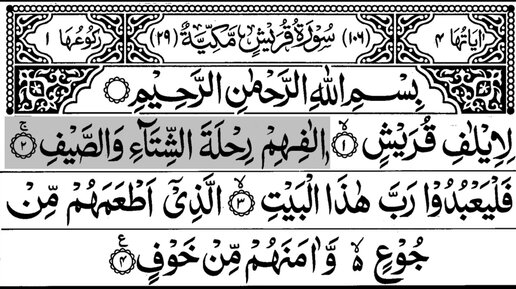 اٰیَاتُهَا ٤ (١٠٦) سُوْرَةُ قُرَيْشٍ مَّكِّيَّةٌ (٢٩) رُكُوْعُهَا ١
بِسْمِ اللّٰهِ الرَّحْمٰنِ الرَّحِيْمِ
لِاِيْلٰفِ قُرَيْشٍ ۙ﴿١﴾ اٖلٰفِهِمْ رِحْلَةَ الشِّتَآءِ وَالصَّيْفِ ۚ﴿٢﴾
فَلْيَعْبُدُوْا رَبَّ هٰذَا الْبَيْتِ ۙ﴿٣﴾ الَّذِيْۤ اَطْعَمَهُمْ مِّنْ
جُوْعٍ ۬ۙ وَّاٰمَنَهُمْ مِّنْ خَوْفٍ ﴿٤﴾ ع